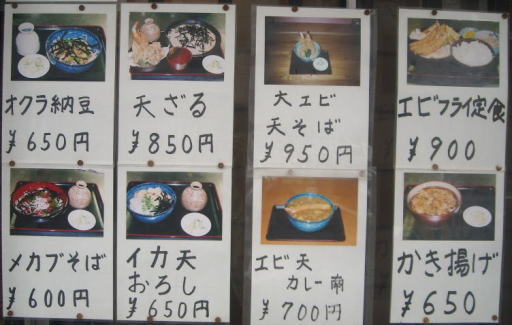 オクラ納豆
¥650円
天ざる
¥850円
大エビ
天そば
¥950円
エビフライ定食
¥900
メカブそば
¥600円
イカ天
おろし
¥650円
エビ天
カレー南
¥700円
かき揚げ
¥650